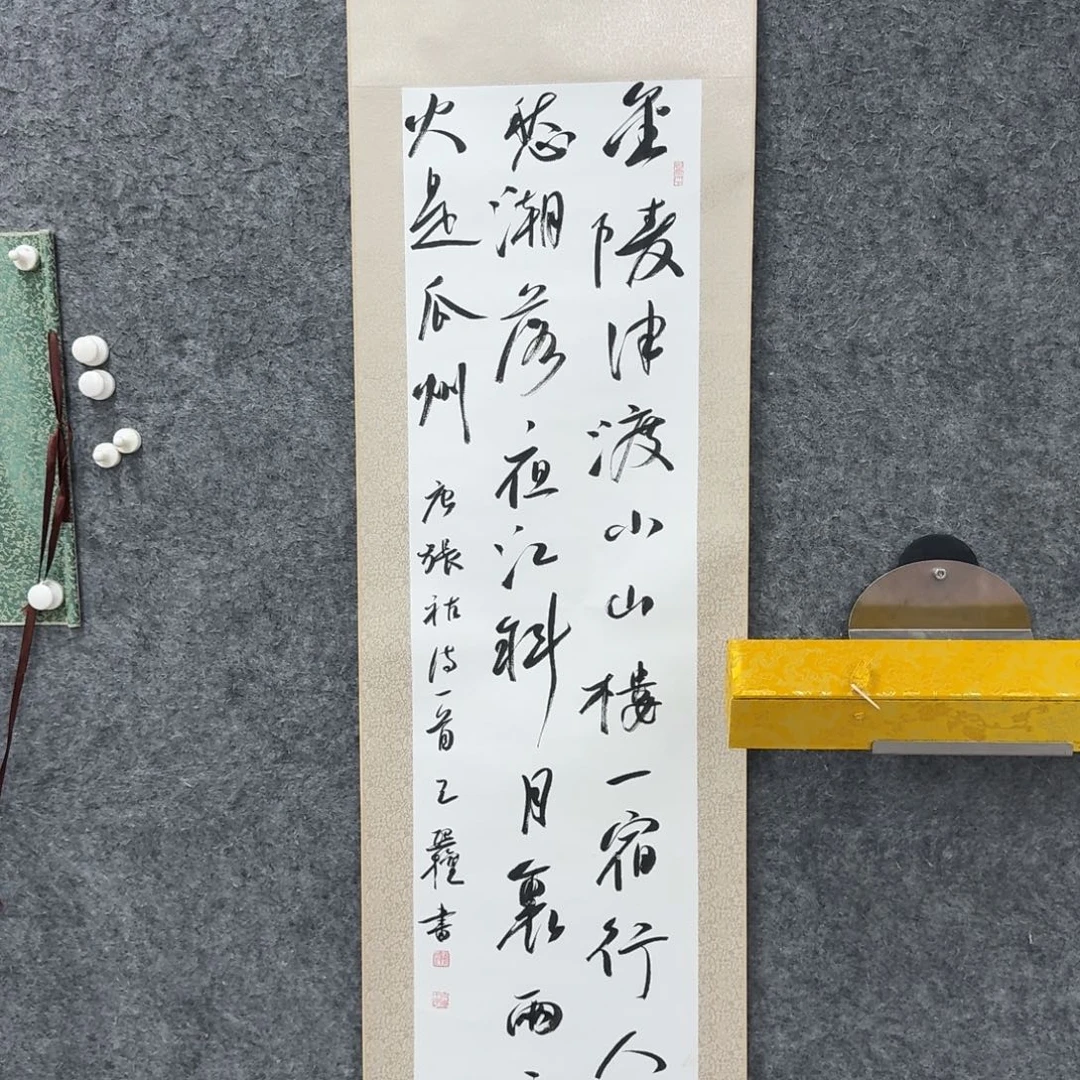 金陵津渡小山樓一宿行人
愁潮落夜江斜月裏兩
火是瓜州
唐張祜詩一首 書